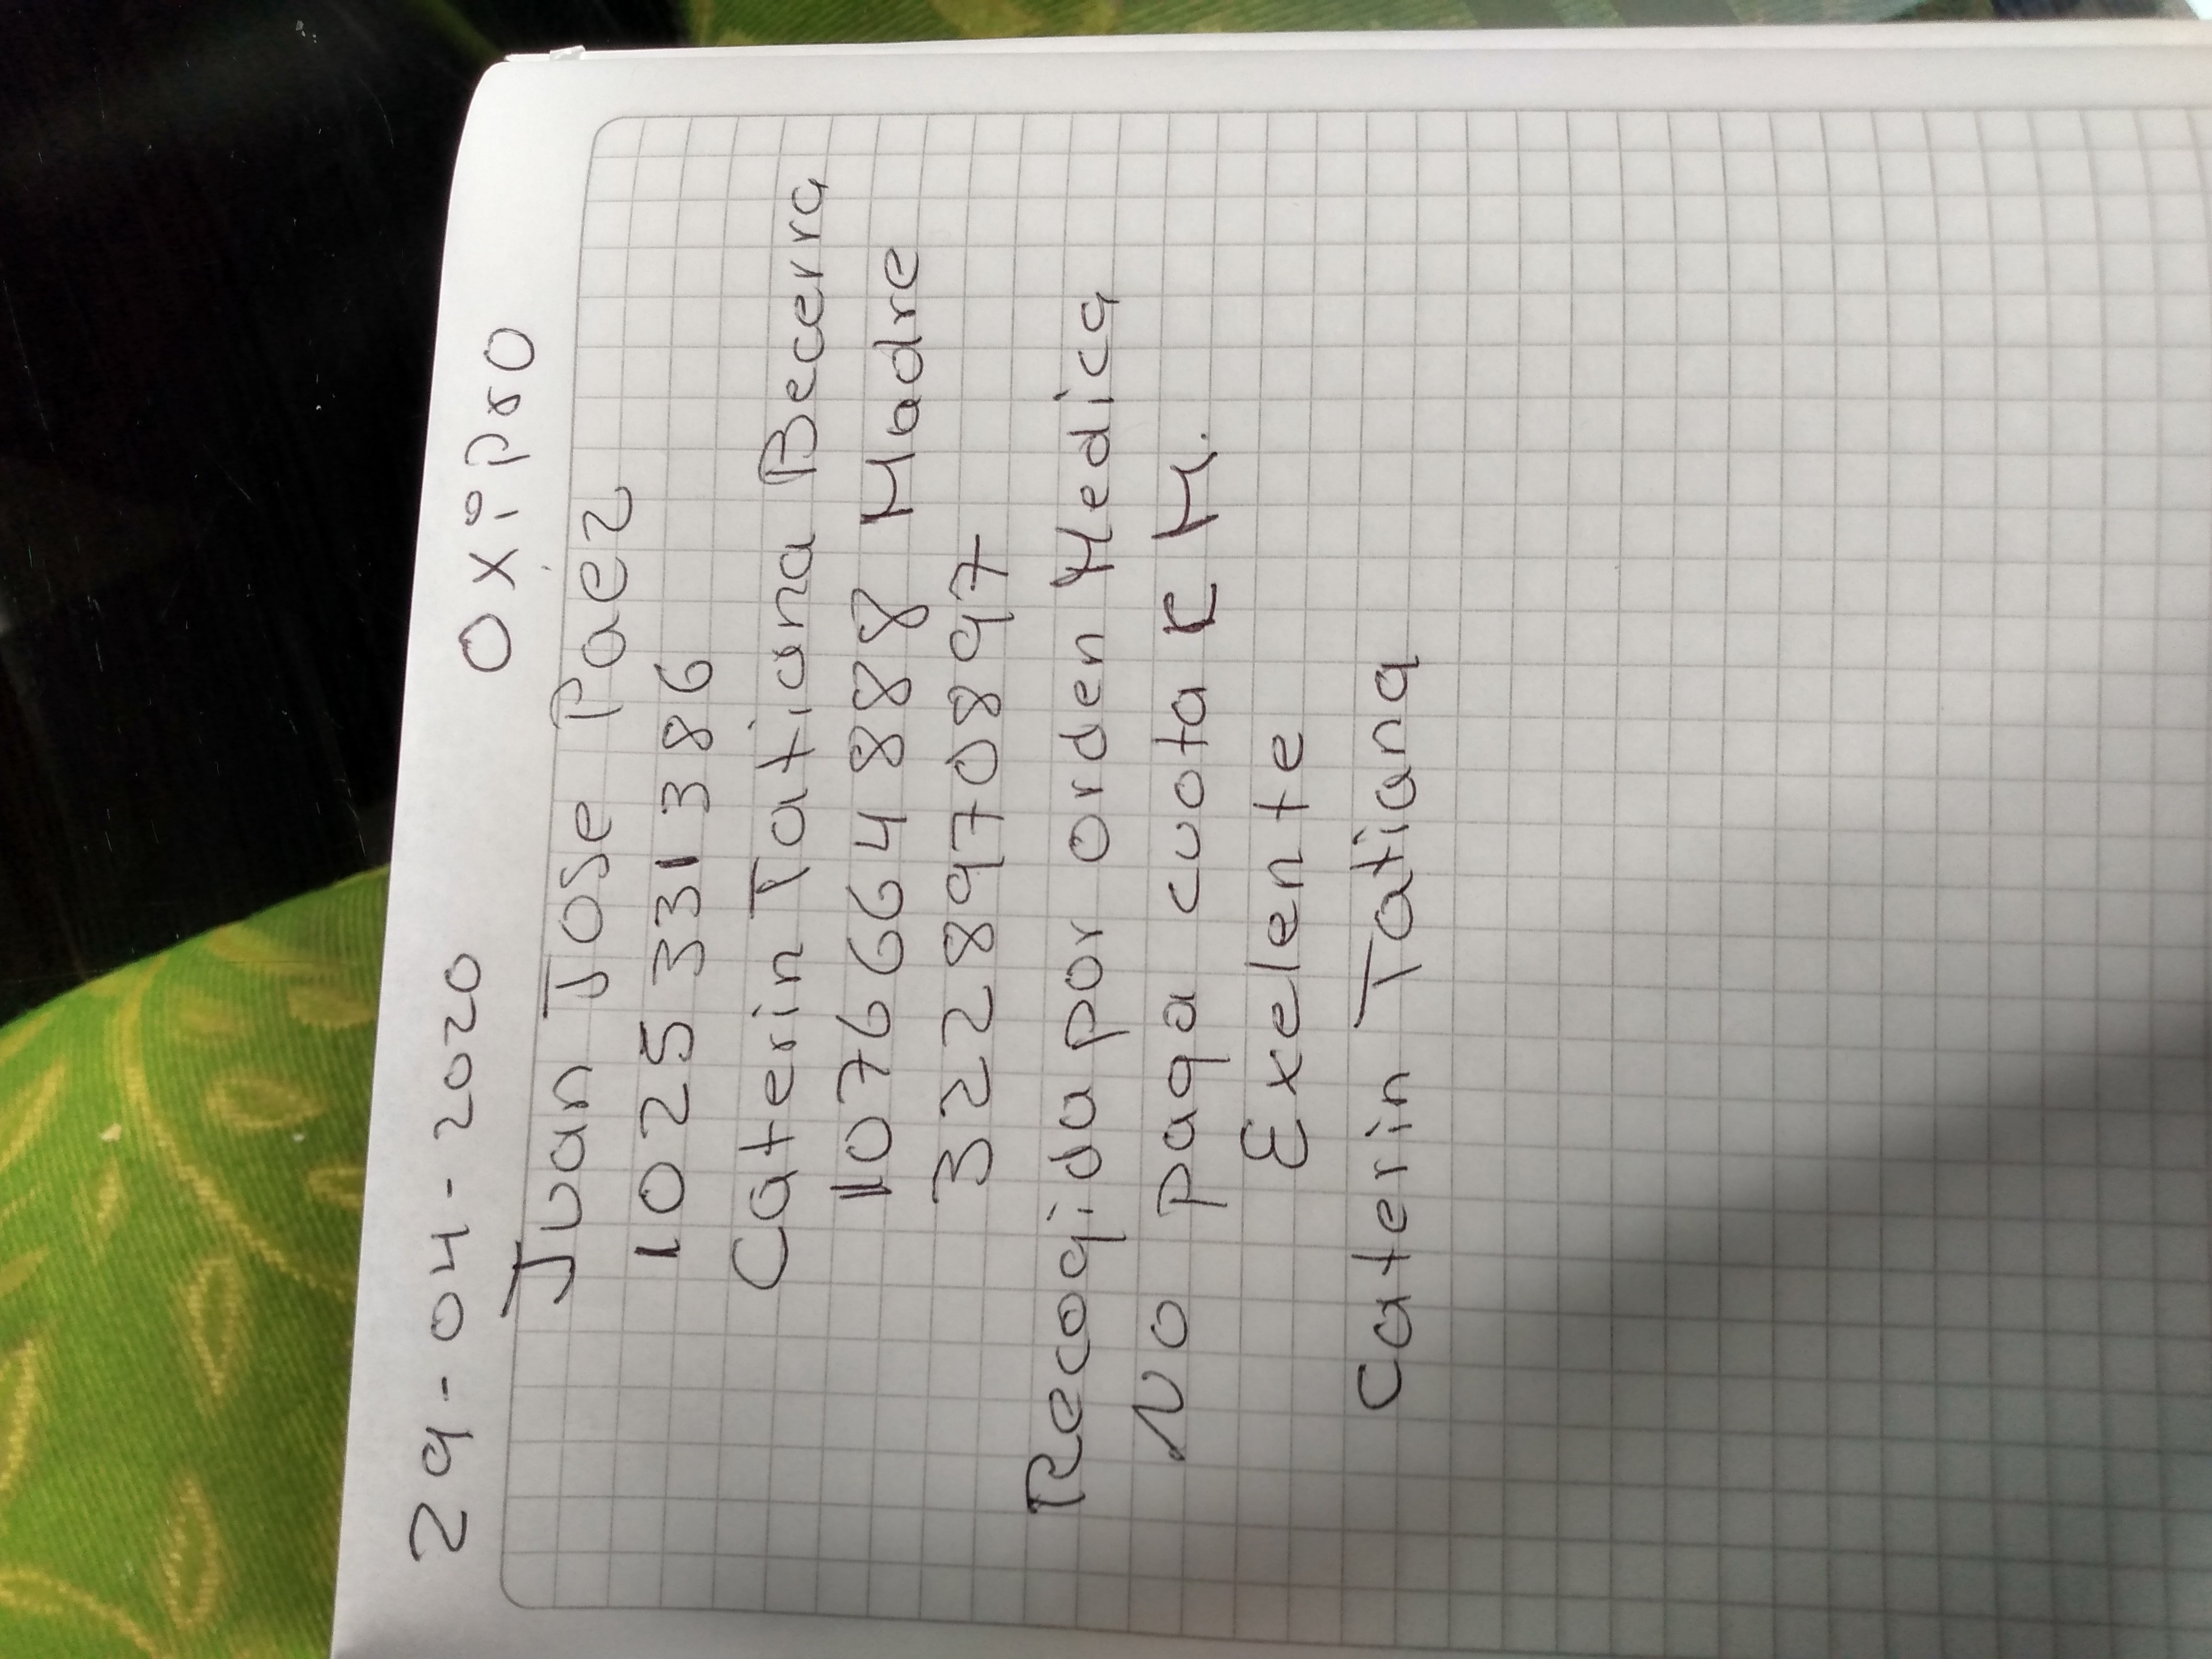 29-04-2020 oxipro
Juan Jose Paez
1025331386
Caterin Tatiana Becerra
1076664888 Madre
3228970897
Recogida por orden Medica
No paga cuota K M.
Exelente
Caterin Tatiana